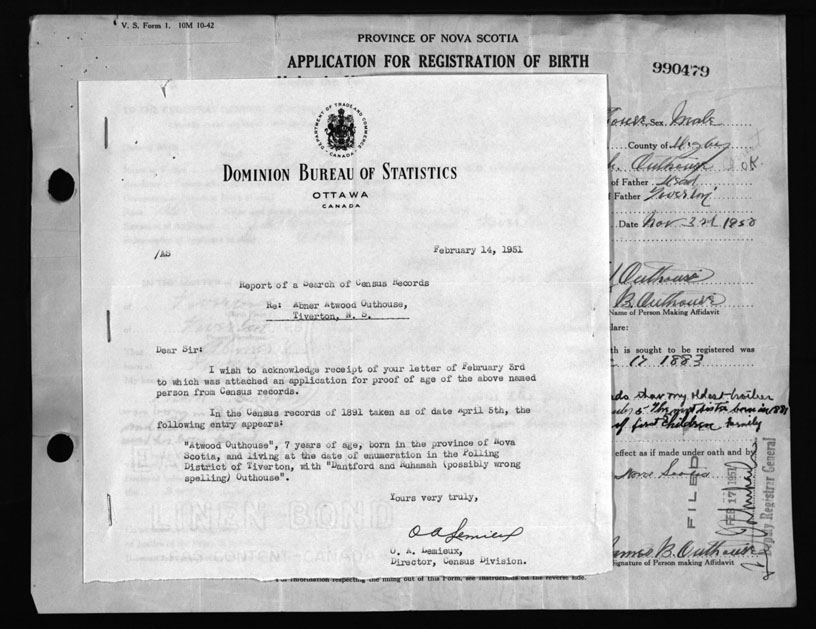 V. S. Form 1. 10M 10-42
PROVINCE OF NOVA SCOTIA
APPLICATION FOR REGISTRATION OF BIRTH
990479
DEPARTMENT OF TRADE AND COMMERCE
CANADA
DOMINION BUREAU OF STATISTICS
OTTAWA
CANADA
/AS
February 14, 1951
Report of a Search of Census Records
Re: Abner Atwood Outhouse,
Tiverton, N. S.
Dear Sir:
I wish to acknowledge receipt of your letter of February 3rd
to which was attached an application for proof of age of the above named
person from Census records.
In the Census records of 1891 taken as of date April 5th, the
following entry appears:
"Atwood Outhouse", 7 years of age, born in the province of Nova
Scotia, and living at the date of enumeration in the Polling
District of Tiverton, with "Dantford and Ruhamah (possibly wrong
spelling) Outhouse".
Yours very truly,
O A Lemieux
O. A. Lemieux,
Director, Census Division.
LINEN BOND
RAG CONTENT-CANADA
Sex Male
County of Digby
Outhouse O.K.
of Father
of Father Tiverton
Date Nov 3rd 1950
Outhouse
B. Outhouse
Name of Person Making Affidavit
lare:
th is sought to be registered was
17 1883
my oldest brother
born in 1881
of first children family
effect as if made under oath and by
Nova Scotia
FILED
FEB 17 1951
Deputy Registrar General
James B. Outhouse
Signature of Person making Affidavit
For information respecting the filling out of this Form, see instructions on the reverse side.